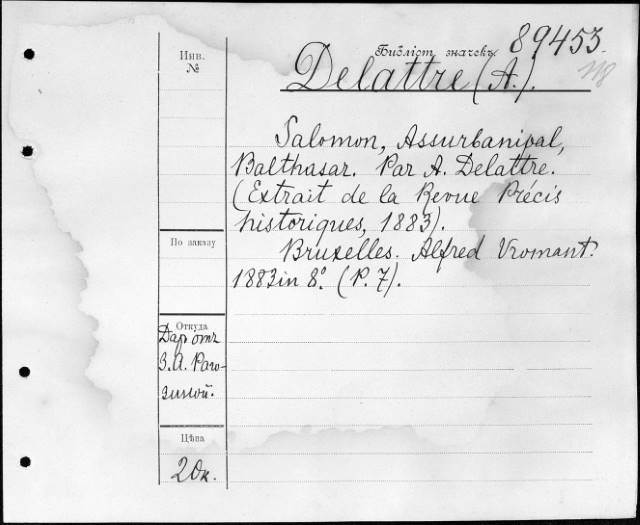 Библіот. значекъ 89453.
118
Delattre (A.).
Инв.
№
Salomon, Assurbanipal,
Balthasar. Par A. Delattre.
(Extrait de la Revue Précis
historiques, 1883).
Bruxelles. Alfred Vromant.
1883 in 8º. (P. 7).
По заказу
Откуда
Даръ отъ
З. А. Раго-
зиной.
Цѣна
20к.